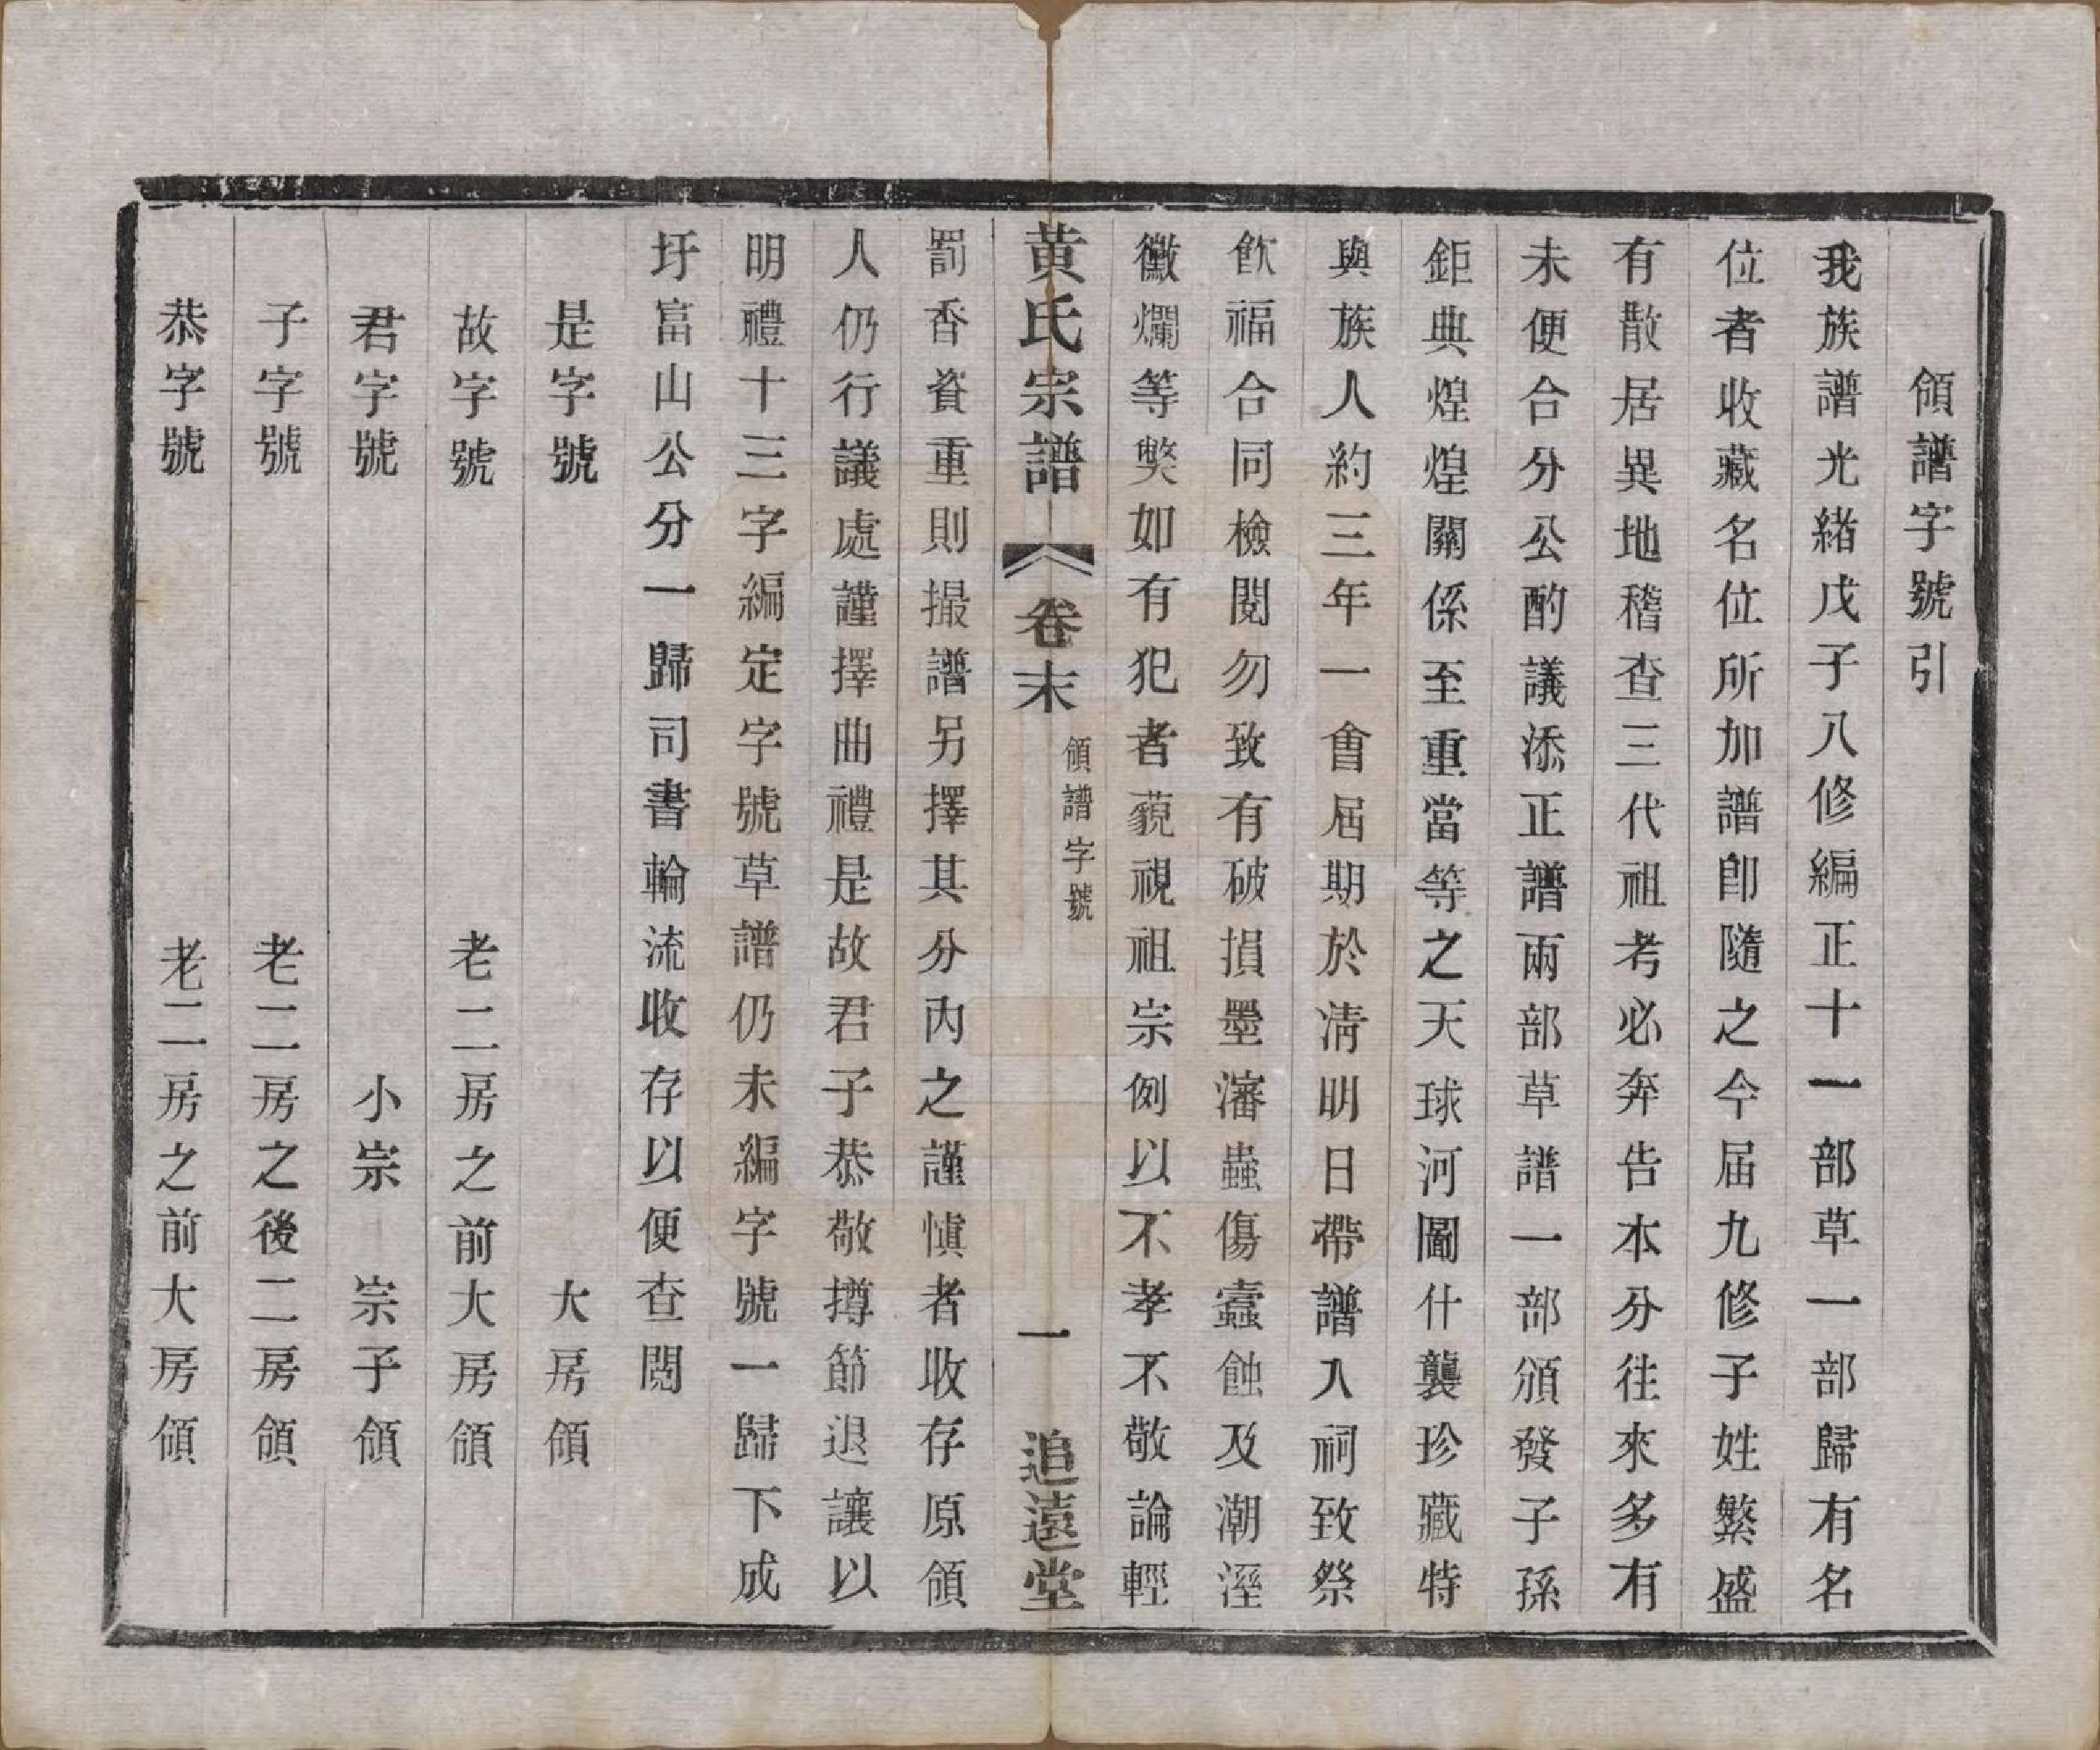 領譜字號引
我族譜光緒戊子八修編正十一部草一部歸有名
位者收藏名位所加譜卽隨之今届九修子姓繁盛
有散居異地稽查三代祖考必奔告本分往來多有
未便合分公酌議添正譜兩部草譜一部頒發子孫
鉅典煌煌關係至重當等之天球河圖什襲珍藏特
與族人約三年一會屆期於淸明日帶譜入祠致祭
飲福合同檢閱勿致有破損墨瀋蟲傷蠹蝕及潮溼
黴爛等獘如有犯者藐視祖宗例以不孝不敬論輕
黃氏宗譜 卷末 領譜字號 一 追遠堂
罰香資重則撮譜另擇其分內之謹愼者收存原領
人仍行議處謹擇曲禮是故君子恭敬撙節退讓以
明禮十三字編定字號草譜仍未編字號一歸下成
圩富山公分一歸司書輪流收存以便查閱
是字號 大房領
故字號 老二房之前大房領
君字號 小宗 宗子領
子字號 老二房之後二房領
恭字號 老二房之前大房領